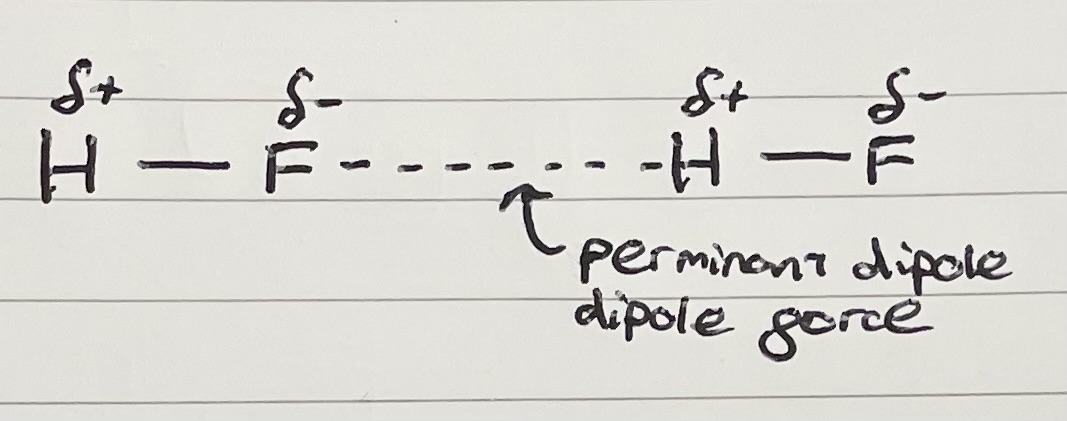 δ+ δ- δ+ δ-
H — F - - - - - - - H — F
perminant dipole
dipole gorce